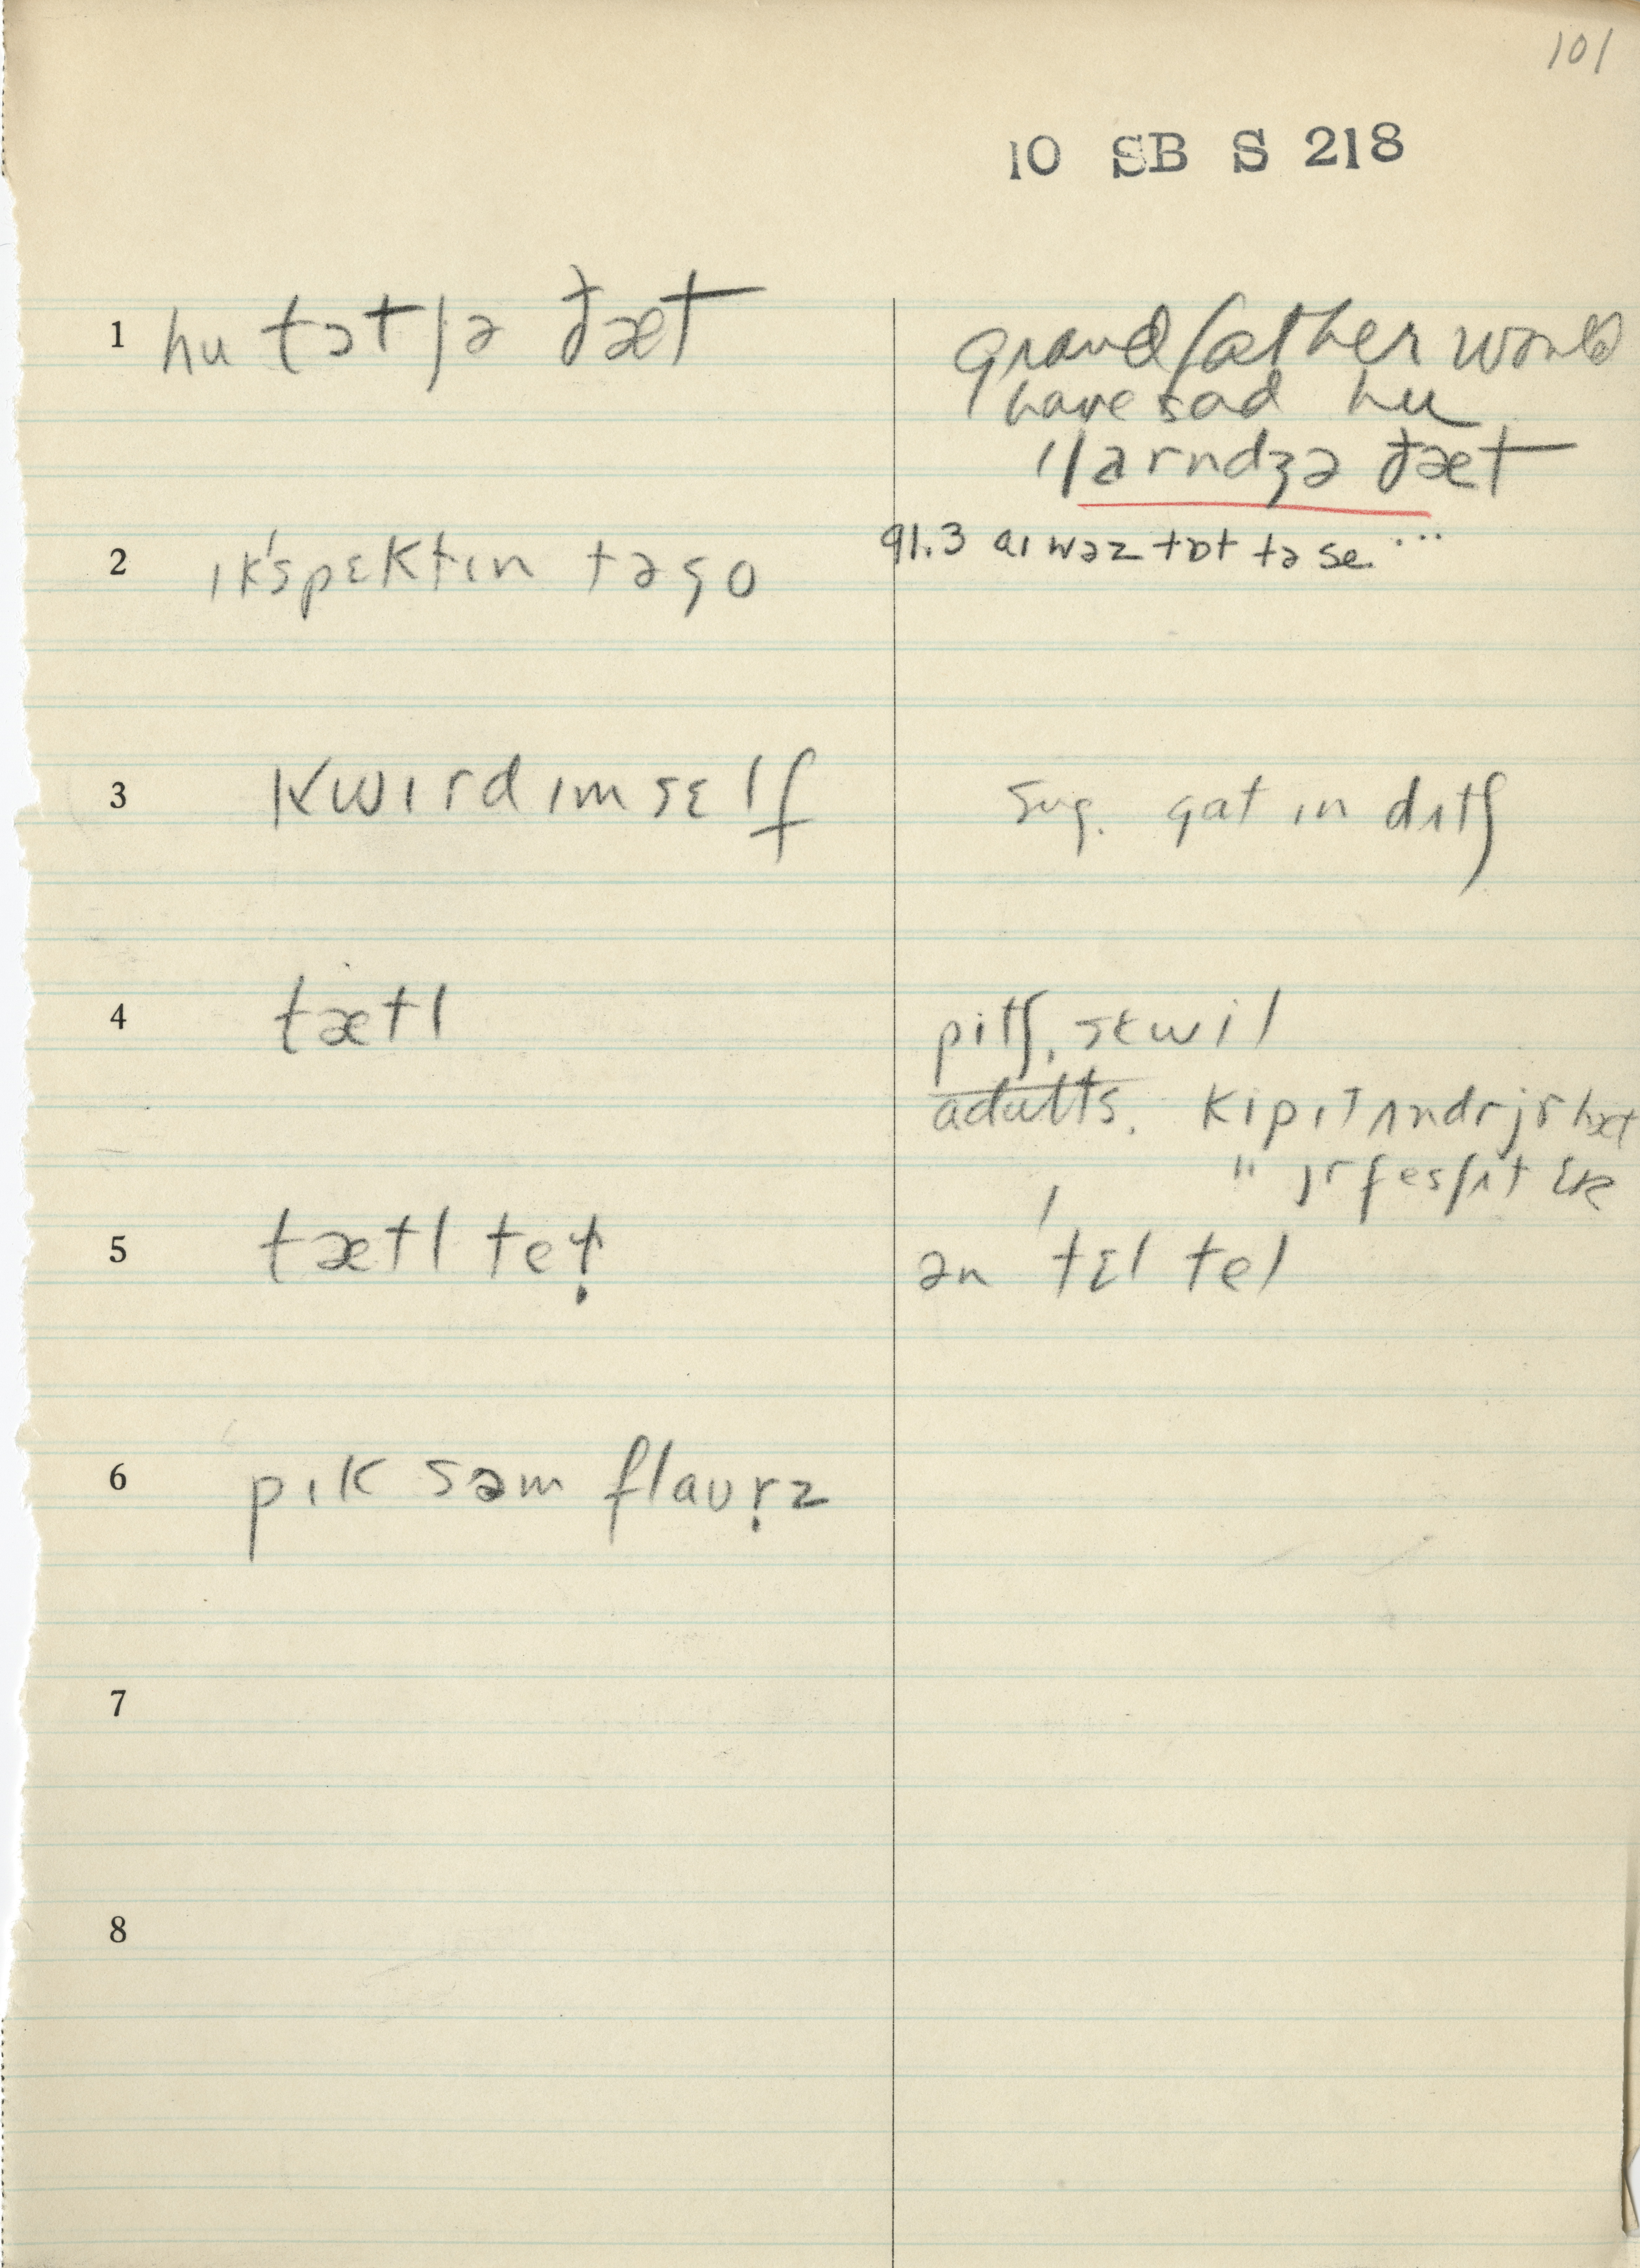 101
10 SB S 218
1 hu tɔt jə ðæt
grandfather would
have sad hu
larndʒə ðæt
2 ɪk'spɛktɪn tə go
91.3 aɪ wəz tɒt tə se...
3 kwɪrd ɪmsɛlf
sug. gat ɪn dʌtʃ
4 tætl
pitʃ, skwil
adults. kip ɪt ʌndr jr hæt
" jr fes ʃʌt
5 tætl tet
ən 'tɛl tel
6 pɪk səm flaʊrz
7
8